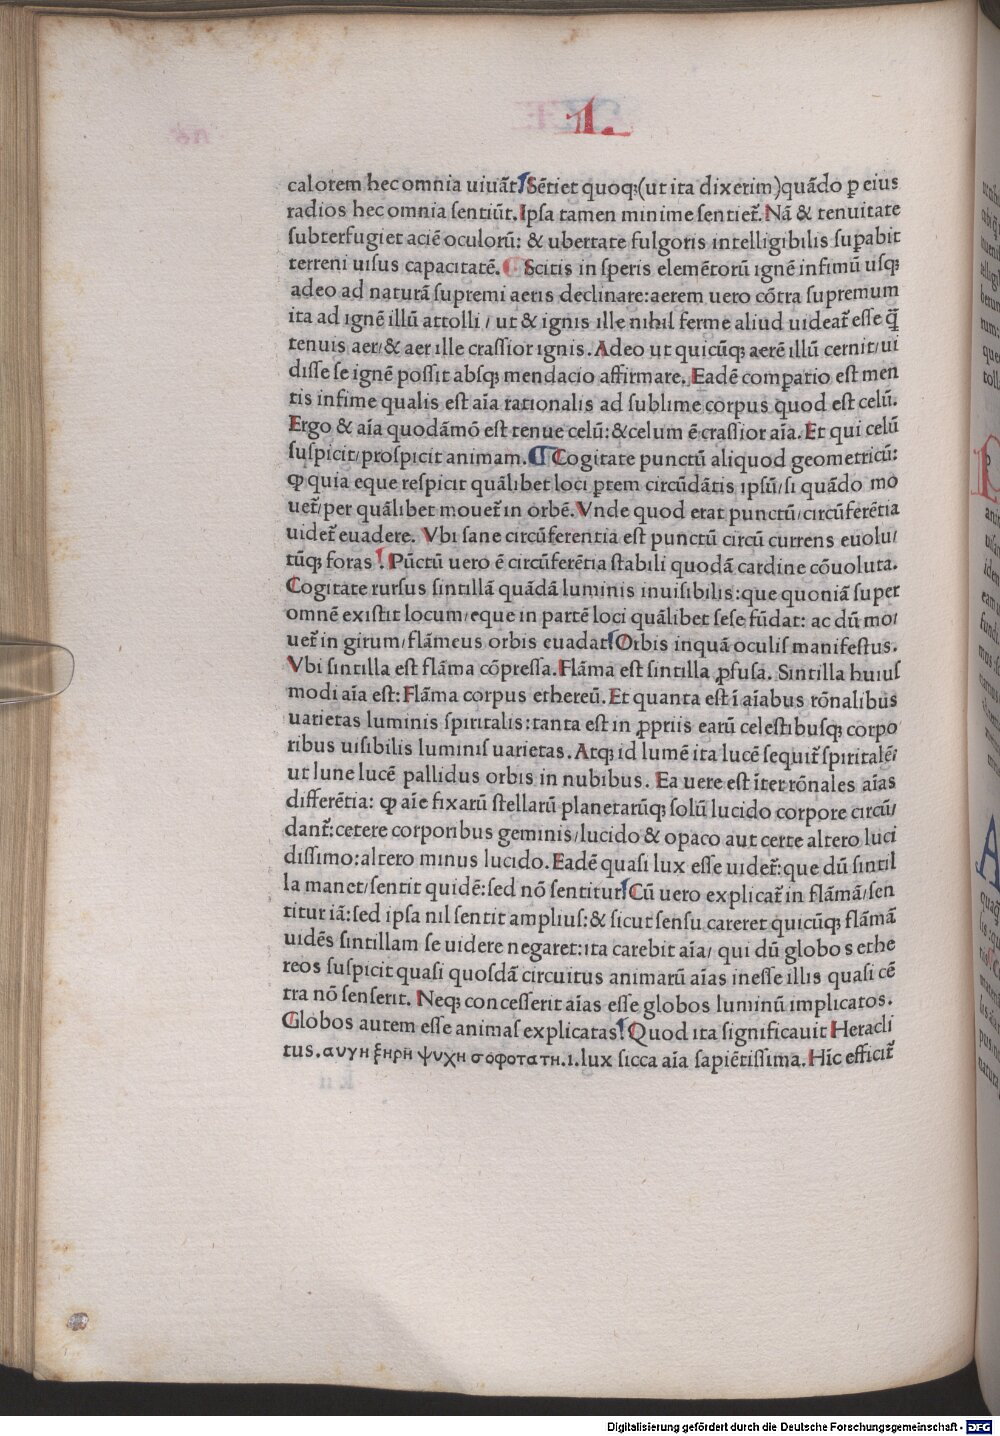 1.
calorem hec omnia uiuãt¶Sẽtiet quoqꝫ(ut ita dixerim)quãdo ꝑ eius
radios hec omnia ſentiũt.Ipſa tamen minime ſentiet᷑.Nã & tenuitate
ſubterfugiet aciẽ oculorũ: & ubertate fulgoris intelligibilis ſuꝑabit
terreni uiſus capacitatẽ. ¶ Scitis in ſperis elemẽtorũ ignẽ infimũ uſqꝫ
adeo ad naturã ſupremi aeris declinare:aerem uero cõtra ſupremum
ita ad ignẽ illũ attolli / ut & ignis ille nihil ferme aliud uideat᷑ eſſe q̃
tenuis aer/& aer ille craſſior ignis.Adeo ut quicũqꝫ aerẽ illũ cernit/ui
diſſe ſe ignẽ poſſit abſqꝫ mendacio affirmare. Eadẽ comꝑatio eſt men
tis infime qualis eſt aĩa rationalis ad ſublime corpus quod eſt celũ.
Ergo & aĩa quodãmõ eſt tenue celũ:&celum ẽ craſſior aĩa.Et qui celũ
ſuſpicit/proſpicit animam.¶Cogitate punctũ aliquod geometricũ:
ꝙ quia eque reſpicit quãlibet loci ꝑtem circũdãtis ipſũ/ſi quãdo mo
uet᷑/per quãlibet mouet᷑ in orbẽ.Vnde quod erat punctũ/circũferẽtia
uidet᷑ euadere. Vbi ſane circũferentia eſt punctũ circũ currens euolu/
tũqꝫ foras¶.Pũctũ uero ẽ circũferẽtia ſtabili quodã cardine cõuoluta.
Cogitate rurſus ſintillã quãdã luminis inuiſibilis:que quoniã ſuper
omnẽ exiſtit locum/eque in partẽ loci quãlibet ſeſe fũdat: ac dũ mo/
uet᷑ in girum/flãmeus orbis euadat¶Orbis inquã oculiſ manifeſtus.
Vbi ſintilla eſt flãma cõpreſſa.Flãma eſt ſintilla ꝓfuſa. Sintilla huiuſ
modi aĩa eſt:Flãma corpus ethereũ.Et quanta eſt ĩ aĩabus rõnalibus
uarietas luminis ſpiritalis:tanta eſt in ꝓpriis earũ celeſtibuſqꝫ corpo
ribus uiſibilis luminiſ uarietas.Atqꝫ id lumẽ ita lucẽ ſequit᷑ ſpiritalẽ/
ut lune lucẽ pallidus orbis in nubibus. Ea uere eſt ĩter rõnales aĩas
differẽtia: ꝙ aĩe fixarũ ſtellarũ planetarũqꝫ ſolũ lucido corpore circũ/
dant᷑:cetere corporibus geminis/lucido & opaco aut certe altero luci
diſſimo:altero minus lucido.Eadẽ quaſi lux eſſe uidet᷑:que dũ ſintil
la manet/ſentit quidẽ:ſed nõ ſentitur¶Cũ uero explicat᷑ in flãmã/ſen
titur iã:ſed ipſa nil ſentit ampliuſ:& ſicut ſenſu careret quicũqꝫ flãmã
uidẽs ſintillam ſe uidere negaret:ita carebit aĩa/ qui dũ globos ethe
reos ſuſpicit quaſi quoſdã circuitus animarũ aĩas ineſſe illis quaſi cẽ
tra nõ ſenſerit. Neqꝫ conceſſerit aĩas eſſe globos luminũ implicatos.
Globos autem eſſe animaſ explicatas¶Quod ita ſignificauit Heracli
tus.αυγη ξηρη ψυχη σοφοτατη.i.lux ſicca aĩa ſapiẽtiſſima.Hĩc efficit᷑
Digitalisierung gefördert durch die Deutsche Forschungsgemeinschaft - DFG